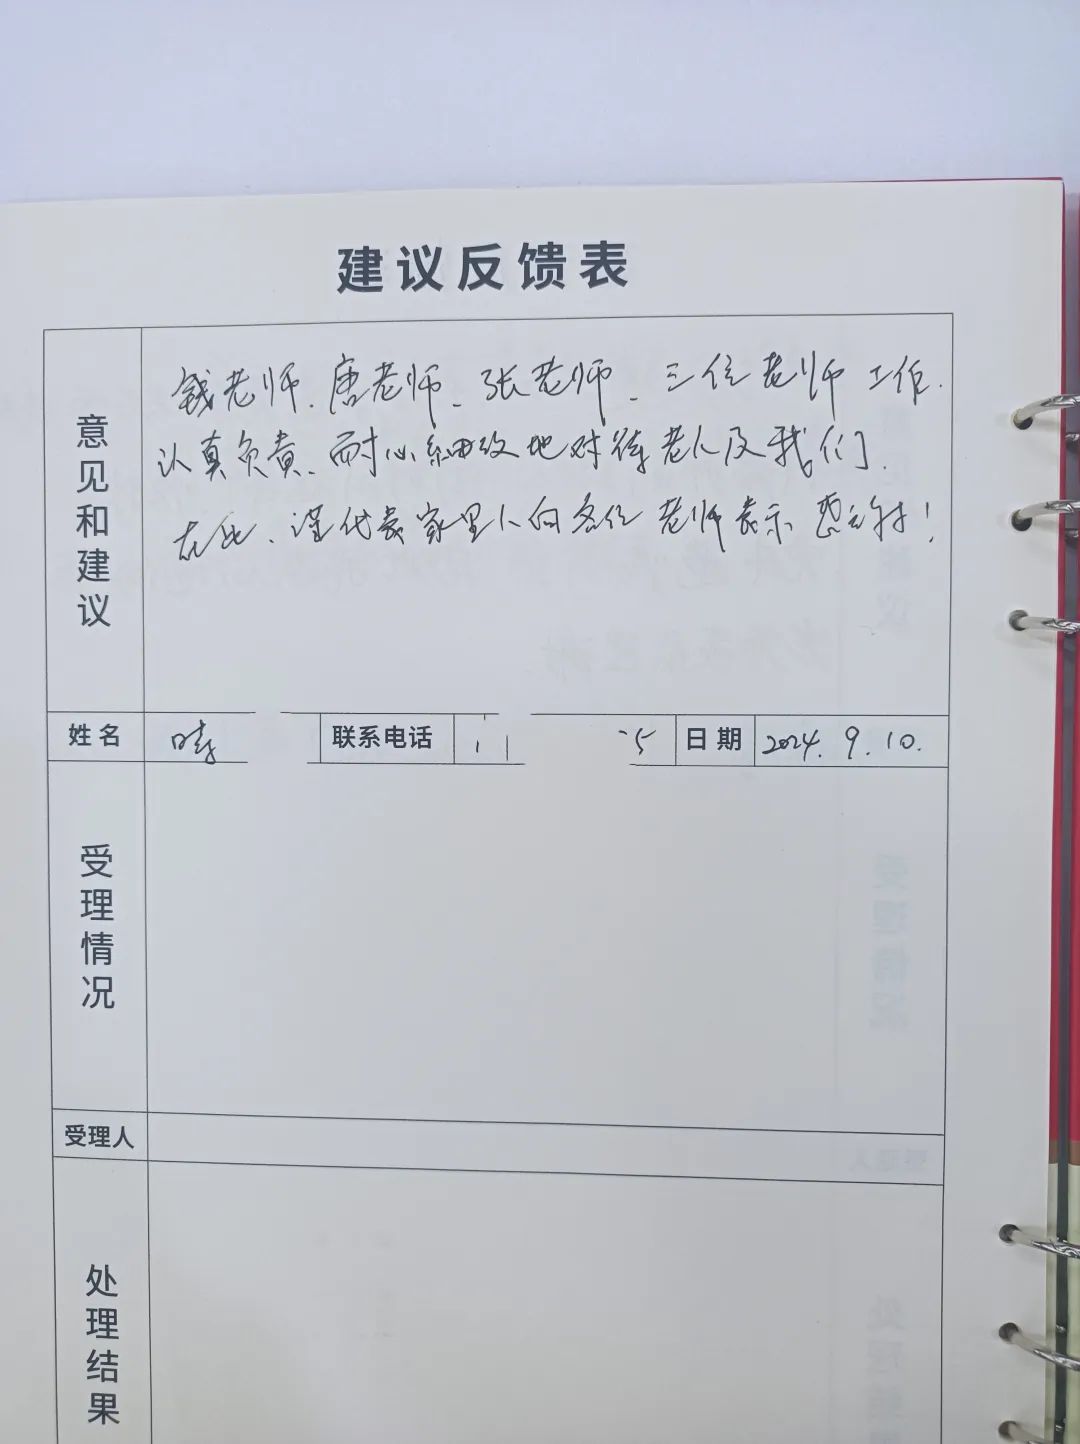 建议反馈表
意见和建议
钱老师、唐老师、张老师、三位老师工作
认真负责、耐心细致地对待老人及我们.
在此、谨代表家里人向各位老师表示感谢!
姓名
联系电话
5
日期 2024.9.10.
受理情况
受理人
处理结果